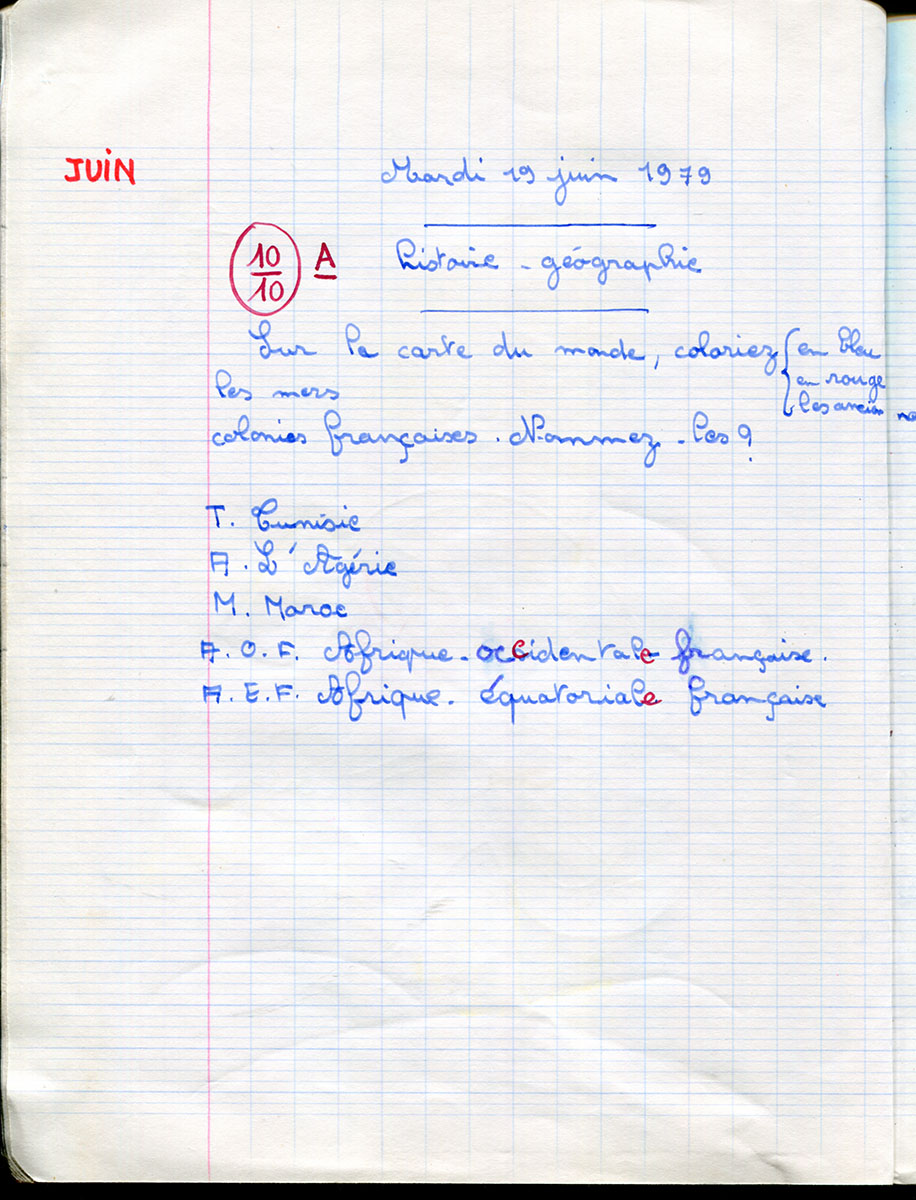 JUIN
Mardi 19 juin 1979
10/10 A
histoire - géographie
Sur la carte du monde, coloriez { en bleu
les mers
en rouge
les ancien ne
colonies françaises. Nommez-les ?
T. Tunisie
A. L'Agérie
M. Maroc
A. O. F. Afrique-occidentale française.
A. E. F. Afrique-équatoriale française